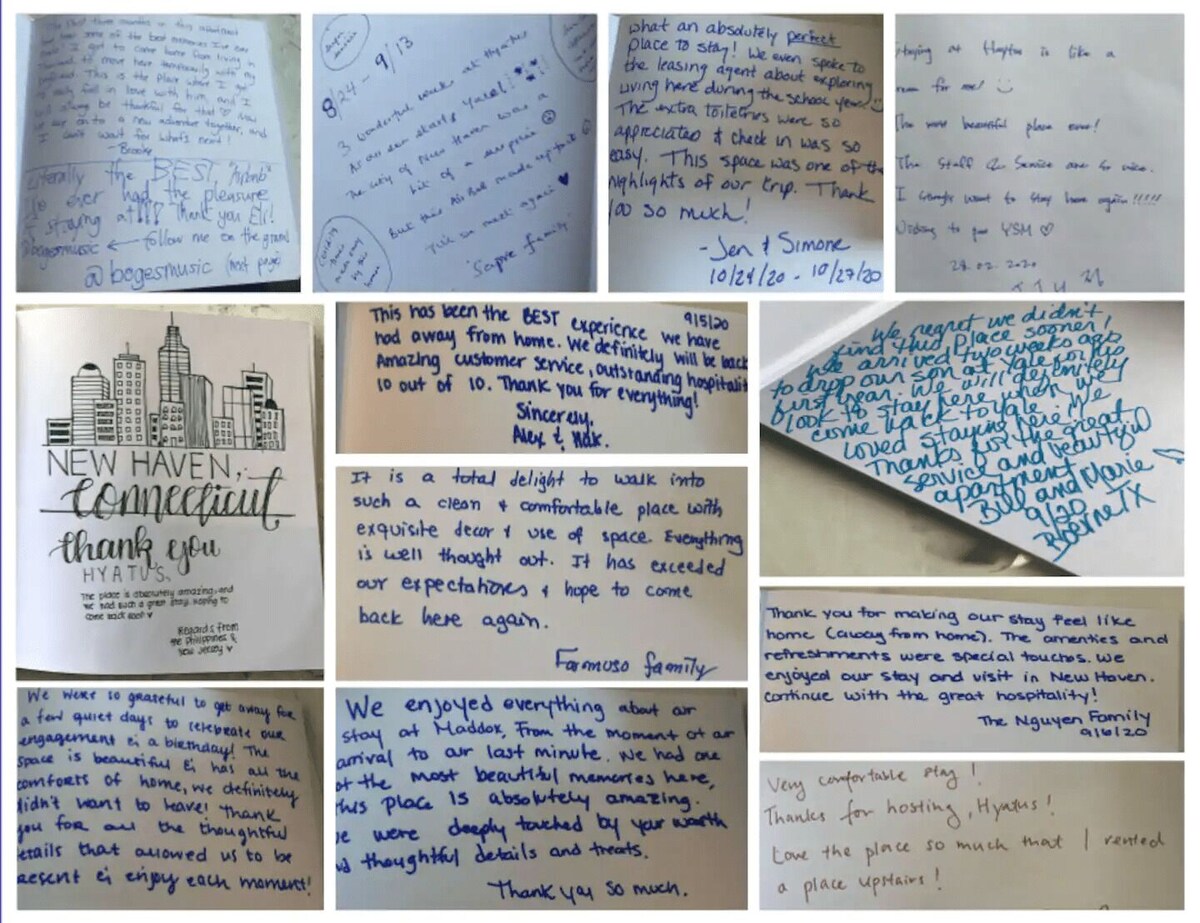 The last three months in this apartment
had some of the best memories I've ever
made! I got to come home from living in
to move here temporarily with my
This is the place where I got
fall in love with him, and I
always be thankful for that!
on to a new adventure together, and
I can't wait for what's next!
- Brooke
Literally the BEST, "Airbnb"
I've ever had the pleasure
of staying at!!! Thank you Eli!
@bogesmusic ← follow me on the gram
@bogesmusic (next page)
8/24 - 9/13
3 wonderful weeks at Hyatus
As our son starts Yale!
The city of New Haven was a
bit of a surprise
But this Air BnB made up for it
Till we meet again ♥
Sapre family
Covid-19
times
made easy
by this
home
What an absolutely perfect
place to stay! We even spoke to
the leasing agent about exploring
living here during the school year
The extra toiletries were so
appreciated & check in was so
easy. This space was one of the
highlights of our trip. Thank
you so much!
- Jen & Simone
10/24/20 - 10/27/20
Staying at Hyatus is like a
for me!
The most beautiful place ever!
The Staff & Service are so nice.
I want to stay here again!!!!!
YSM ♡
28.02.2020
NEW HAVEN,
Connecticut
thank you
HYATUS
The place is absolutely amazing, and
we had such a great stay. Hoping to
come back soon ♥
Regards from
the Philippines &
New Jersey ♥
9/5/20
This has been the BEST experience we have
had away from home. We definitely will be back
Amazing customer service, outstanding hospitality
10 out of 10. Thank you for everything!
Sincerely,
Alex & Mak.
It is a total delight to walk into
such a clean & comfortable place with
exquisite decor & use of space. Everything
is well thought out. It has exceeded
our expectations & hope to come
back here again.
Farmuso family
We regret we didn't
find this place sooner!
We arrived two weeks ago
to drop our son at Yale for his
first year. We will definitely
look to stay here when we
come back to Yale. We
loved staying here!
Thanks for the great
service and beautiful
apartment
Bill and Marie
9/20
Boerne TX
Thank you for making our stay feel like
home (away from home). The amenties and
refreshments were special touches. We
enjoyed our stay and visit in New Haven.
continue with the great hospitality!
The Nguyen Family
9/6/20
We were so grateful to get away for
a few quiet days to celebrate our
engagement & a birthday! The
space is beautiful & has all the
comforts of home, we definitely
didn't want to leave! Thank
you for all the thoughtful
details that allowed us to be
present & enjoy each moment!
We enjoyed everything about our
stay at Maddox, from the moment of our
arrival to our last minute. We had one
of the most beautiful memories here,
this place is absolutely amazing.
we were deeply touched by your
thoughtful details and treats.
Thank you so much.
Very comfortable stay!
Thanks for hosting, Hyatus!
Love the place so much that I rented
a place upstairs!